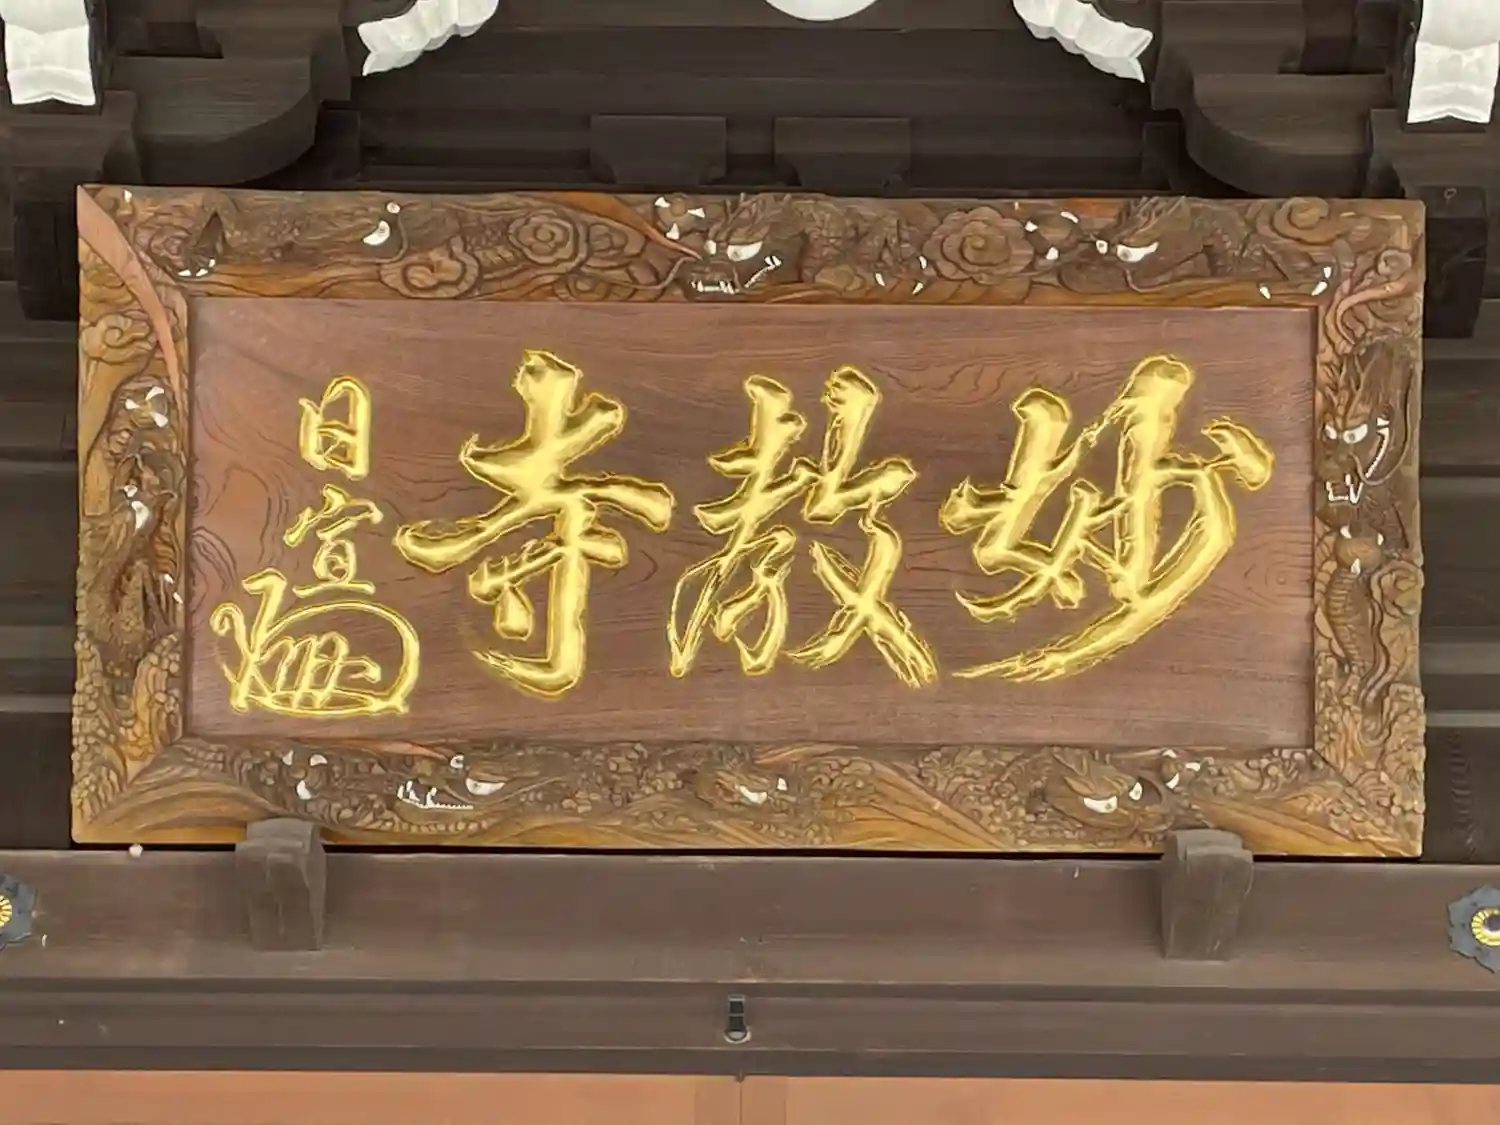 妙教寺
日宣